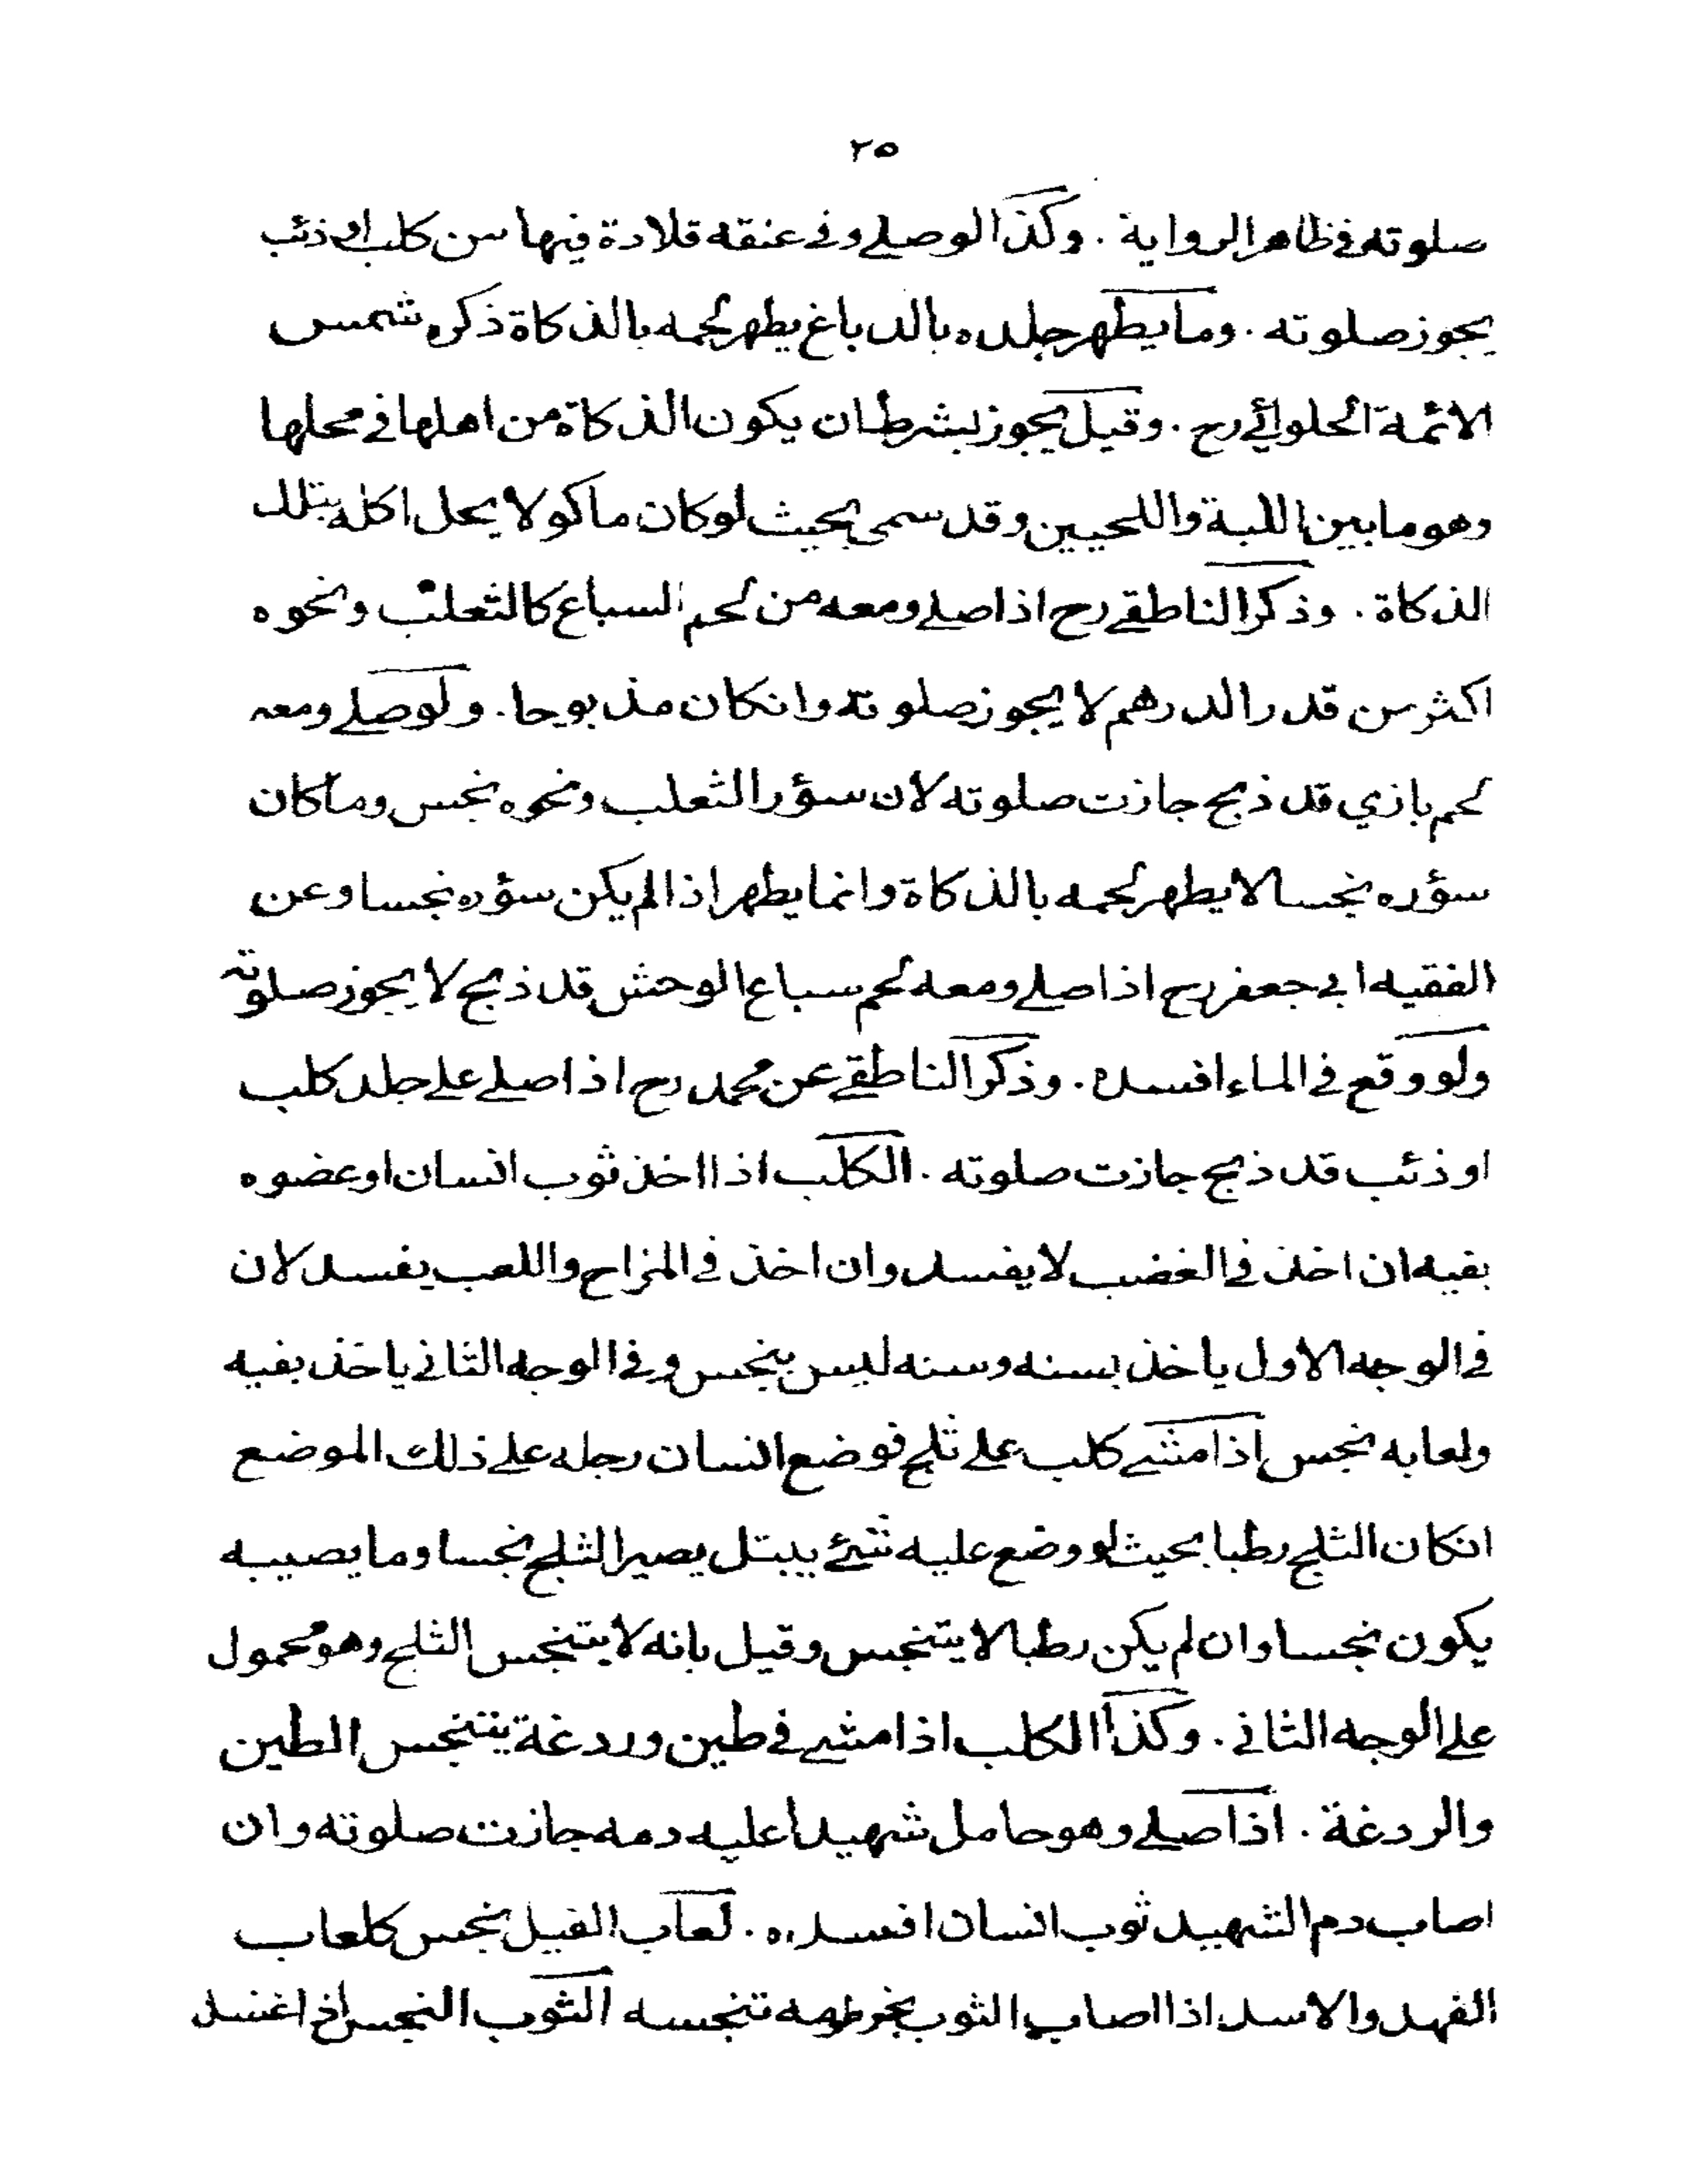 ٢٥
صلوته في ظاهر الرواية . وكذا لو صلى وفي عنقه قلادة فيها سن كلب او ذئب
يجوز صلوته . وما يطهر جلده بالدباغ يطهر لحمه بالذكاة ذكره شمس
الائمة الحلوائي رح . وقيل يجوز بشرط ان يكون الذكاة من اهلها في محلها
وهو ما بين اللبة واللحيين وقد سمى بحيث لو كان ماكولا يحل اكله بتلك
الذكاة . وذكر الناطقي رح اذا صلى ومعه من لحم السباع كالثعلب ونحوه
اكثر من قدر الدرهم لا يجوز صلوته وانكان مذبوحا . ولو صلى ومعه
لحم بازي قد ذبح جازت صلوته لان سؤر الثعلب ونحوه نجس وما كان
سؤره نجسا لا يطهر لحمه بالذكاة وانما يطهر اذا لم يكن سؤره نجسا وعن
الفقيه ابي جعفر رح اذا صلى ومعه لحم سباع الوحش قد ذبح لا يجوز صلوته
ولو وقع في الماء افسده . وذكر الناطقي عن محمد رح اذا صلى على جلد كلب
او ذئب قد ذبح جازت صلوته . الكلب اذا اخذ ثوب انسان او عضوه
بفيه ان اخذ في الغضب لا يفسد وان اخذ في المزاح واللعب يفسد لان
في الوجه الاول ياخذ بسنه وسنه ليس بنجس وفي الوجه الثاني ياخذ بفيه
ولعابه نجس اذا مشى كلب على ثلج فوضع انسان رجله على ذلك الموضع
انكان الثلج رطبا بحيث لو وضع عليه شئ يبتل يصير الثلج نجسا وما يصيبه
يكون نجسا وان لم يكن رطبا لا يتنجس وقيل بانه لا يتنجس الثلج وهو محمول
على الوجه الثاني . وكذا الكلب اذا مشى في طين وردغة يتنجس الطين
والردغة . اذا صلى وهو حامل شهيدا عليه دمه جازت صلوته وان
اصاب دم الشهيد ثوب انسان افسده . لعاب الفيل نجس كلعاب
الفهد والاسد اذا اصاب الثوب بخرطومه تنجسه الثوب النجس اذا غسل